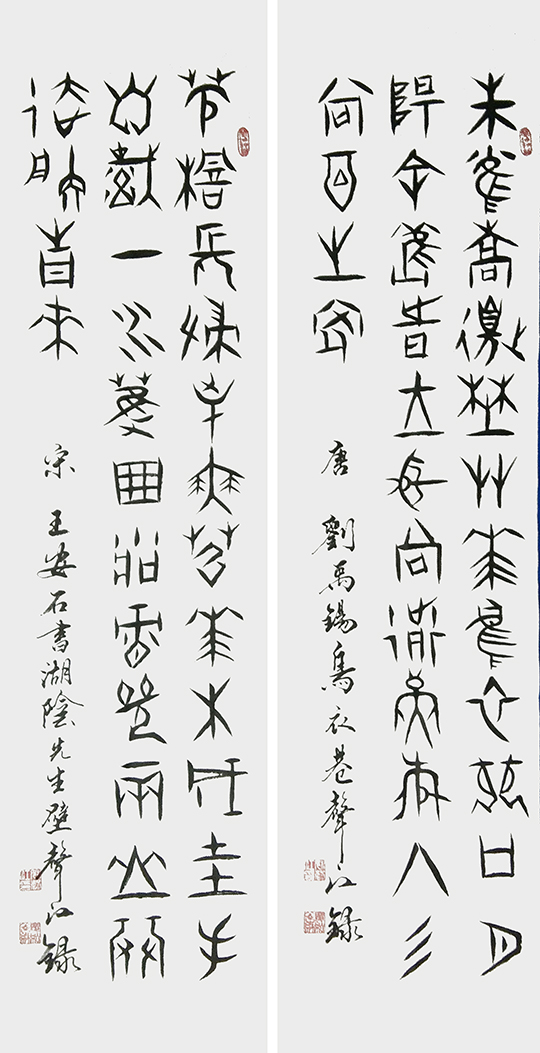 朱雀橋邊野艸花烏衣巷口夕
陽斜舊時王謝堂前燕飛入尋
常百姓家
唐 劉禹錫烏衣巷聲江錄
茅檐長掃淨無苔花木成畦手
自栽一水護田將綠繞兩山排
闥送青來
宋 王安石書湖陰先生壁聲江錄